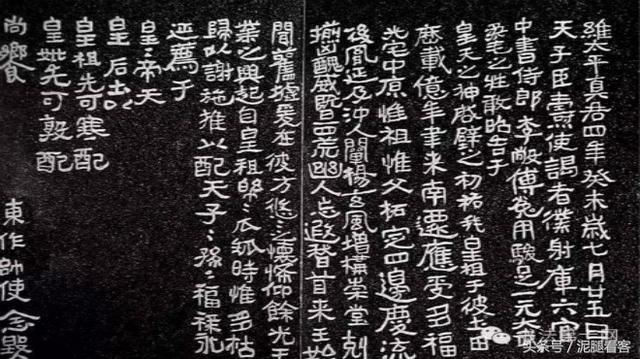 維太平真君四年癸未歲七月廿五日
天子臣燾使謁者僕射庫六官
中書侍郎李敞傅㝹用駿足一元大
柔毛之牲敢昭告于
皇天之神啟辟之初祐我皇祖于彼土田
歷載億年聿來南遷應受多福
光宅中原惟祖惟父拓定四邊慶流
後胤延及沖人闡揚玄風增構崇堂剋
揃凶醜威暨四荒幽人忘遐稽首來王始
聞舊墟爰在彼方悠〻之懷希仰餘光王
業之興起自皇祖綿〻瓜瓞時惟多祜
歸以謝施推以配天子〻孫〻福祿永
延薦于
皇〻帝天
皇〻后土以
皇祖先可寒配
皇妣先可敦配
尚饗
東作帥使念鑿
头条号 / 泥腿看客